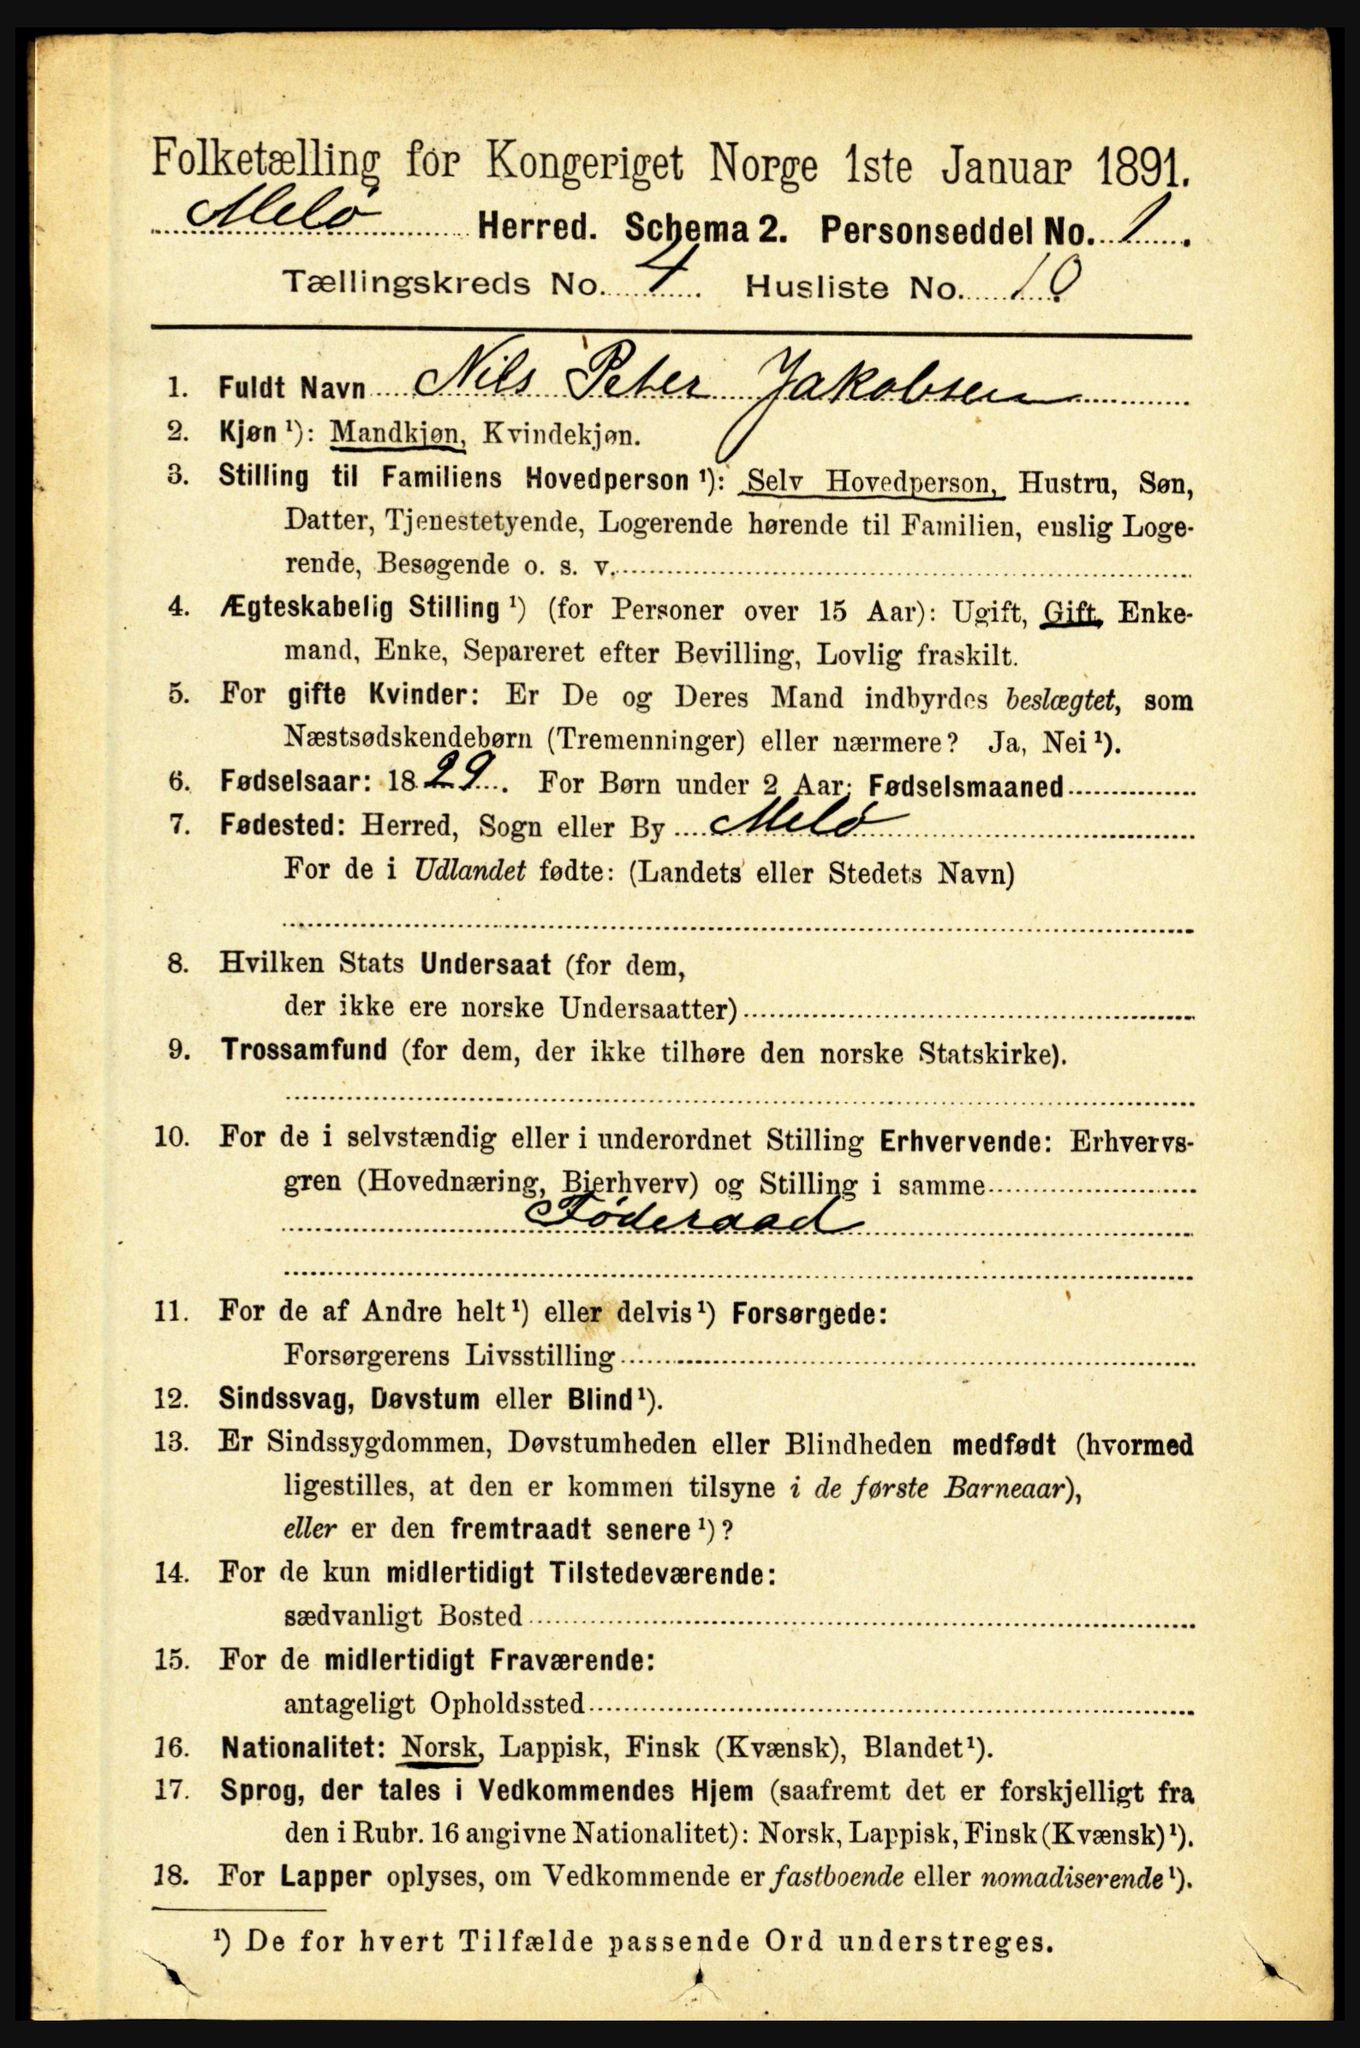 Folketælling for Kongeriget Norge 1ste Januar 1891.
Melø Herred. Schema 2. Personseddel No. 1.
Tællingskreds No. 4. Husliste No. 10
1. Fuldt Navn Nils Peter Jakobsen
2. Kjøn¹): Mandkjøn, Kvindekjøn.
3. Stilling til Familiens Hovedperson¹): Selv Hovedperson, Hustru, Søn,
Datter, Tjenestetyende, Logerende hørende til Familien, enslig Loge-
rende, Besøgende o. s. v.
4. Ægteskabelig Stilling¹) (for Personer over 15 Aar): Ugift, Gift, Enke-
mand, Enke, Separeret efter Bevilling, Lovlig fraskilt.
5. For gifte Kvinder: Er De og Deres Mand indbyrdes beslægtet, som
Næstsødskendebørn (Tremenninger) eller nærmere? Ja, Nei¹).
6. Fødselsaar: 1829. For Børn under 2 Aar: Fødselsmaaned
7. Fødested: Herred, Sogn eller By Melø
For de i Udlandet fødte: (Landets eller Stedets Navn)
8. Hvilken Stats Undersaat (for dem,
der ikke ere norske Undersaatter)
9. Trossamfund (for dem, der ikke tilhøre den norske Statskirke).
10. For de i selvstændig eller i underordnet Stilling Erhvervende: Erhvervs-
gren (Hovednæring, Bierhverv) og Stilling i samme
Føderaad
11. For de af Andre helt¹) eller delvis¹) Forsørgede:
Forsørgerens Livsstilling
12. Sindssvag, Døvstum eller Blind¹).
13. Er Sindssygdommen, Døvstumheden eller Blindheden medfødt (hvormed
ligestilles, at den er kommen tilsyne i de første Barneaar),
eller er den fremtraadt senere¹)?
14. For de kun midlertidigt Tilstedeværende:
sædvanligt Bosted
15. For de midlertidigt Fraværende:
antageligt Opholdssted
16. Nationalitet: Norsk, Lappisk, Finsk (Kvænsk), Blandet¹).
17. Sprog, der tales i Vedkommendes Hjem (saafremt det er forskjelligt fra
den i Rubr. 16 angivne Nationalitet): Norsk, Lappisk, Finsk (Kvænsk)¹).
18. For Lapper oplyses, om Vedkommende er fastboende eller nomadiserende¹).
¹) De for hvert Tilfælde passende Ord understreges.